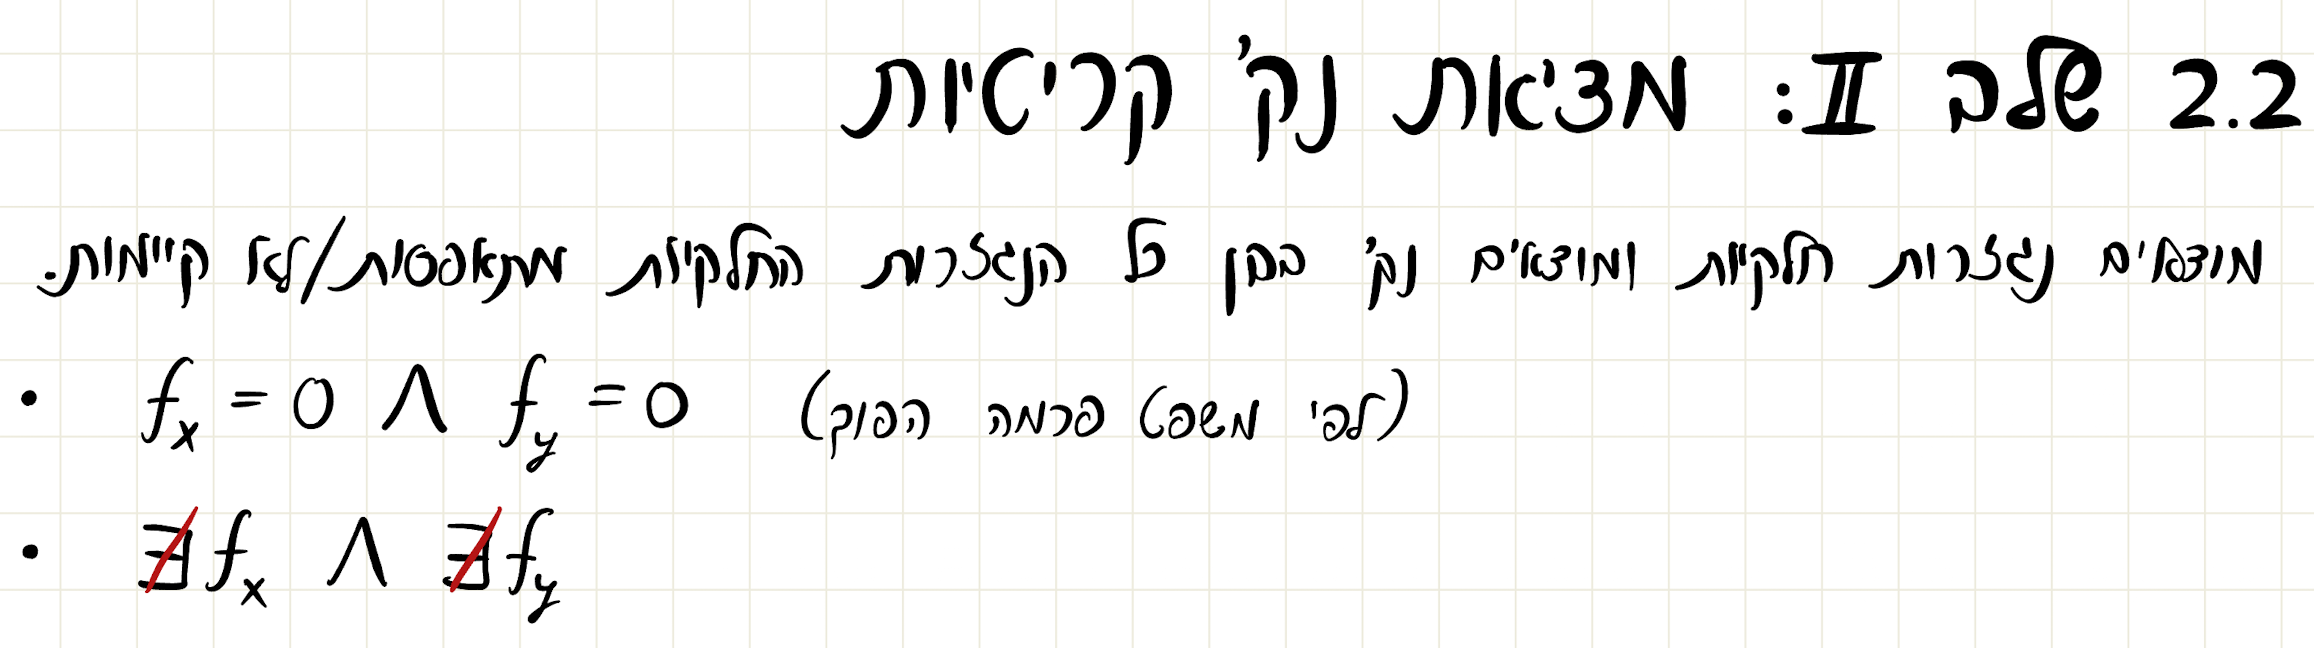 2.2 שלב II: מציאת נק' קריטיות
מוצאים נגזרות חלקיות ומוצאים נק' בהן כל הנגזרות החלקיות מתאפסות/לא קיימות.
• fₓ = 0 ∧ f_y = 0 (לפי משפט פרמה הפוך)
• ∄fₓ ∧ ∄f_y